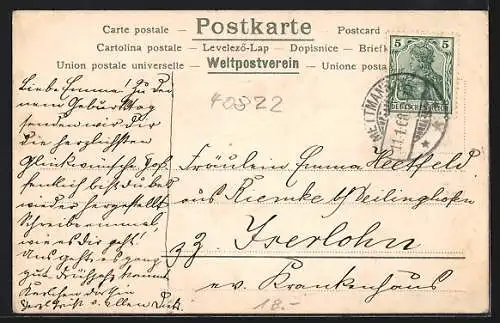 Carte postale — Postkarte — Postcard
Cartolina postale — Levelező-Lap — Dopisnice — Briefk
Union postale universelle — Weltpostverein — Unione posta
5 5
DEUTSCHES REICH
40822
Liebe Emma! Zu dei
nem Geburtstag
senden wir Dir
die herzlichsten
Glückwünsche Hof
fentlich bist Du bes
wieder hergestellt
Schreibe einmal,
wie es Dir geht!
Uns geht es ganz
gut
Fräulein Emma Heetfeld
aus Riemke b/ Deilinghofen
zz. Iserlohn
ev. Krankenhaus
18.-